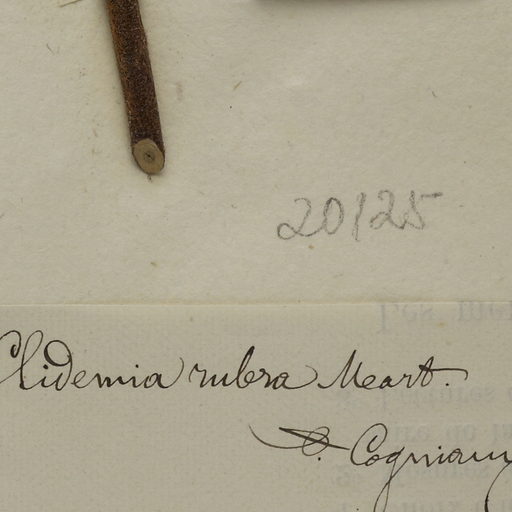 20125
Clidemia rubra Mart.
A. Cogniaux